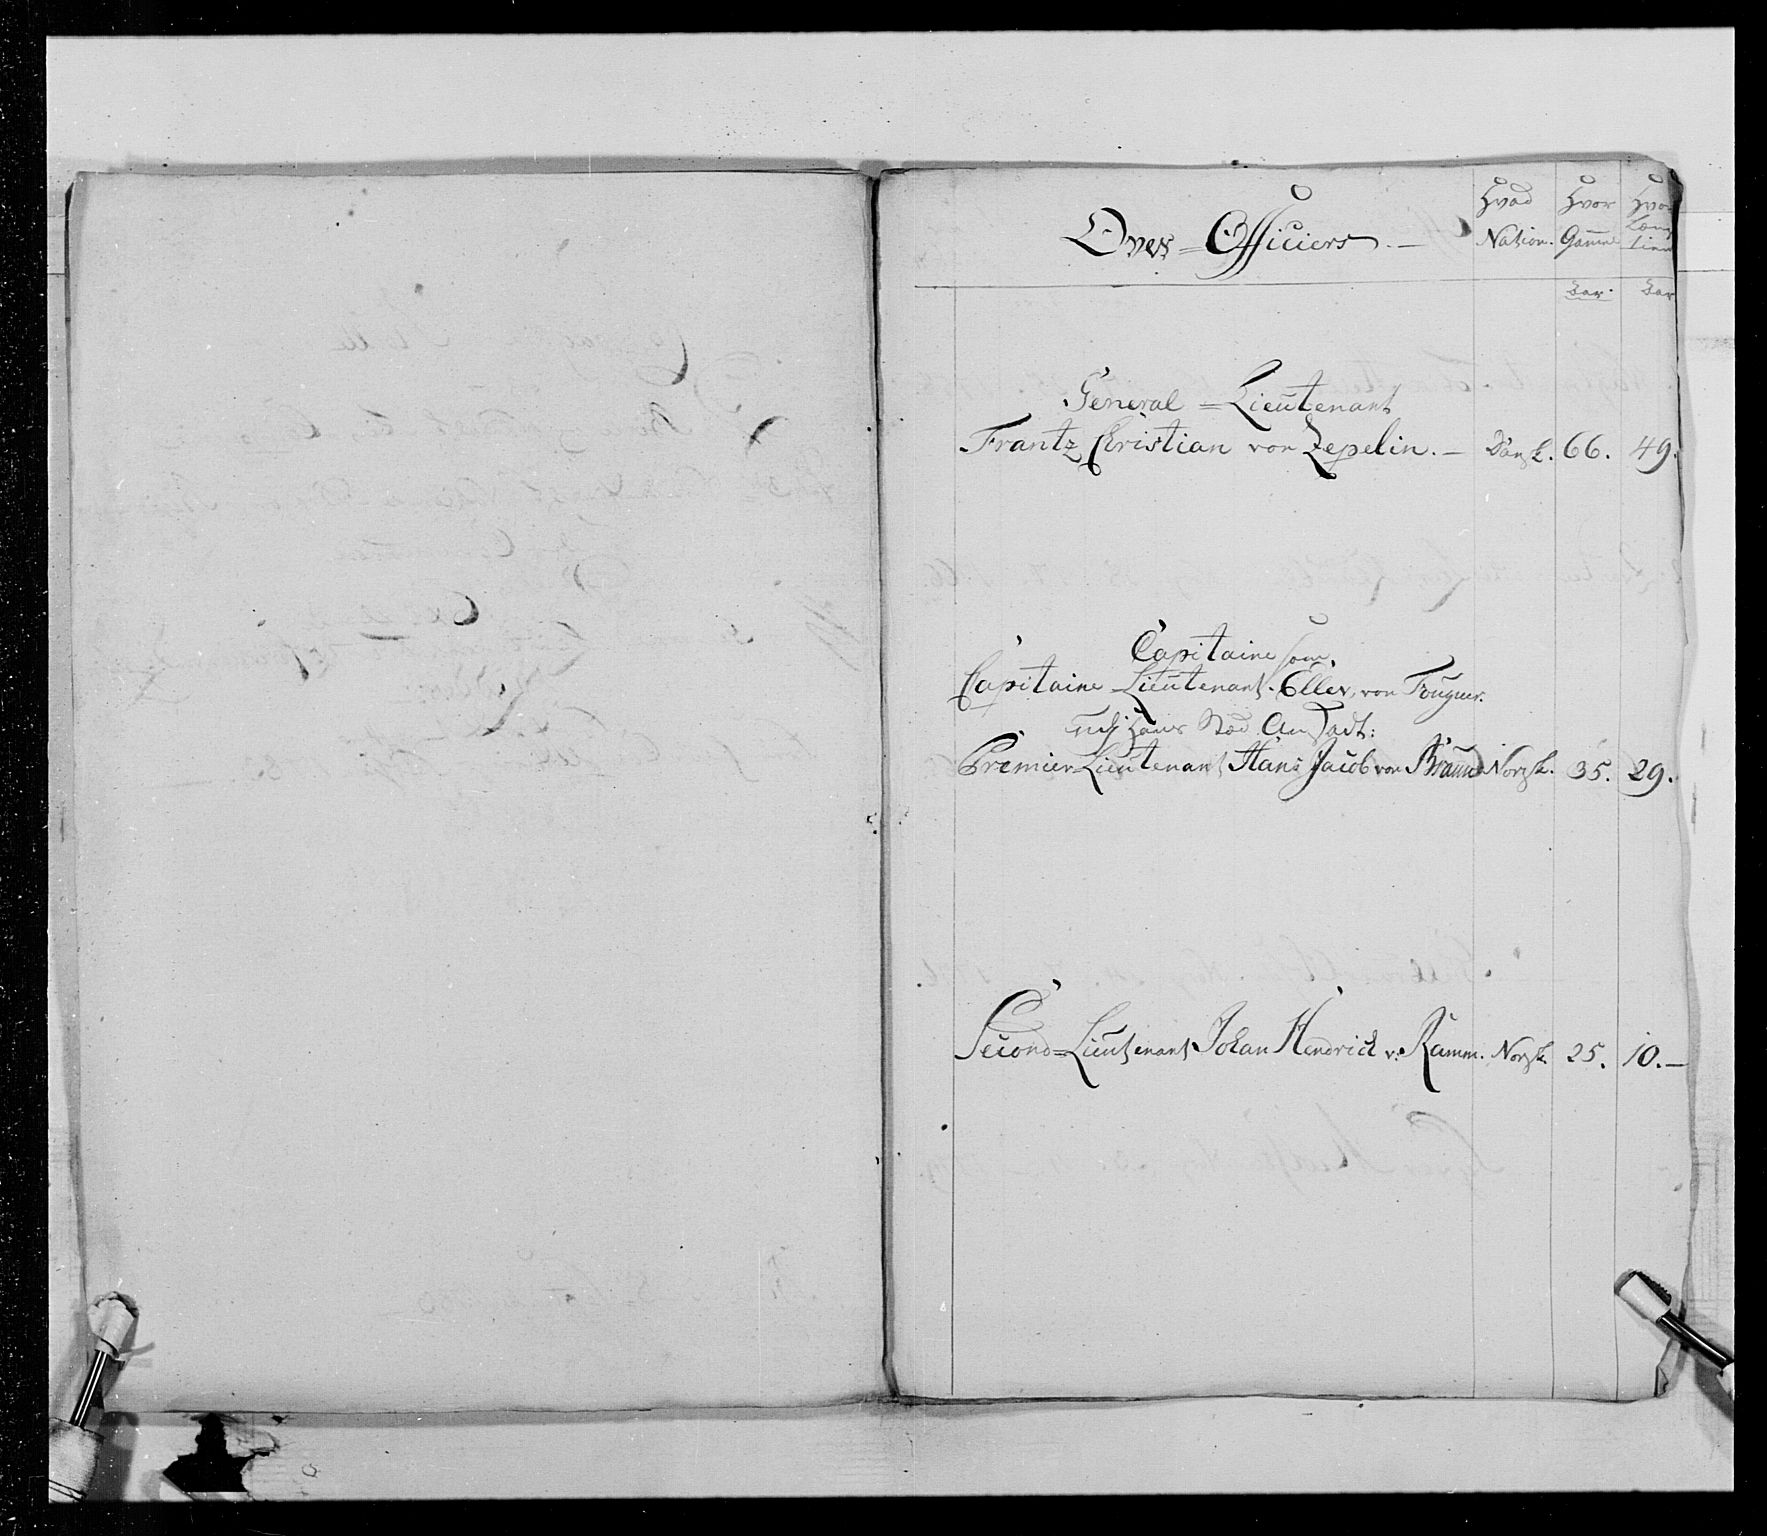 Over-Officiers.
Hvad Nation.
Hvor Gamml
Hvor Læng tient
Aar.
Aar
General-Lieutenant
Frantz Christian von Zepelin. Dansk. 66. 49.
Capitaine som
Capitaine Lieutenant Eller, von Fougner.
udj Hans Stæd Ansadt:
Premier-Lieutenant Hans Jacob von Bruun Norsk. 35. 29.
Second-Lieutenant Johan Hendrich v: Ramm. Norsk. 25. 10.